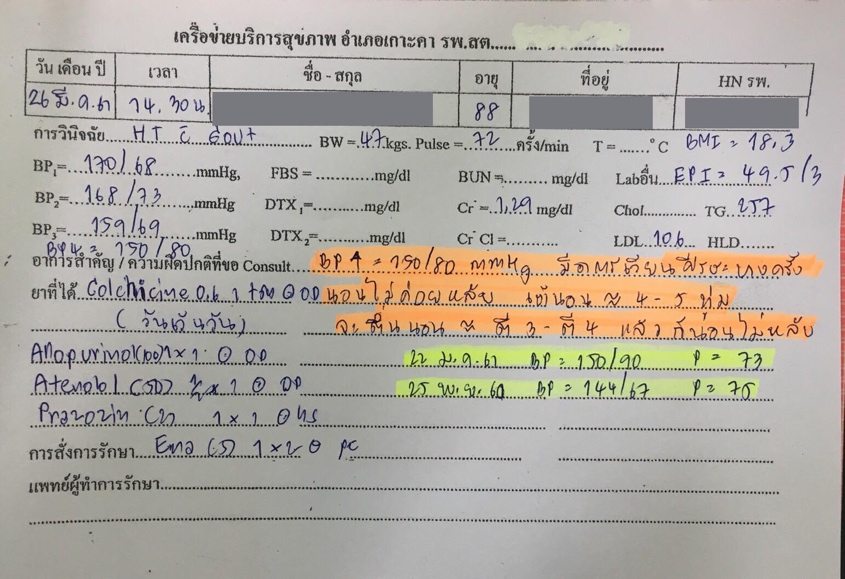 เครือข่ายบริการสุขภาพ อำเภอเกาะคา รพ.สต......
วัน เดือน ปี เวลา ชื่อ - สกุล อายุ ที่อยู่ HN รพ.
26 มี.ค.61 14.30 น. 88
การวินิจฉัย HT c Gout BW = 47 kgs. Pulse = 72 ครั้ง/min T = ...... °C BMI = 18.3
BP1= 170/68 mmHg, FBS = ............ mg/dl BUN = ............ mg/dl Labอื่น EPI = 49.5/3
BP2= 168/73 mmHg DTX1= ............ mg/dl Cr = 1.29 mg/dl Chol. ............ TG 257
BP3= 159/69 mmHg DTX2= ............ mg/dl Cr Cl = .......... LDL 106 HLD.......
BP4 = 150/80
อาการสำคัญ / ความผิดปกติที่ขอ Consult BP4 = 150/80 mmHg มีอาการเวียนศีรษะบางครั้ง
ยาที่ได้ Colchicine 0.6 1 tab OD นอนไม่ค่อยหลับ เข้านอน ≈ 4 - 5 ทุ่ม
(วันเว้นวัน) จะตื่นนอน ≈ ตี 3 - ตี 4 แล้วก็นอนไม่หลับ
Allopurinol (100) 1 x 1 OD 22 ม.ค.61 BP = 150/90 P = 73
Atenolol (50) ½ x 1 OD 25 พ.ย.60 BP = 144/67 P = 75
Prazozin (2) 1 x 1 hs
การสั่งการรักษา Ena (5) 1 x 2 pc
แพทย์ผู้ทำการรักษา